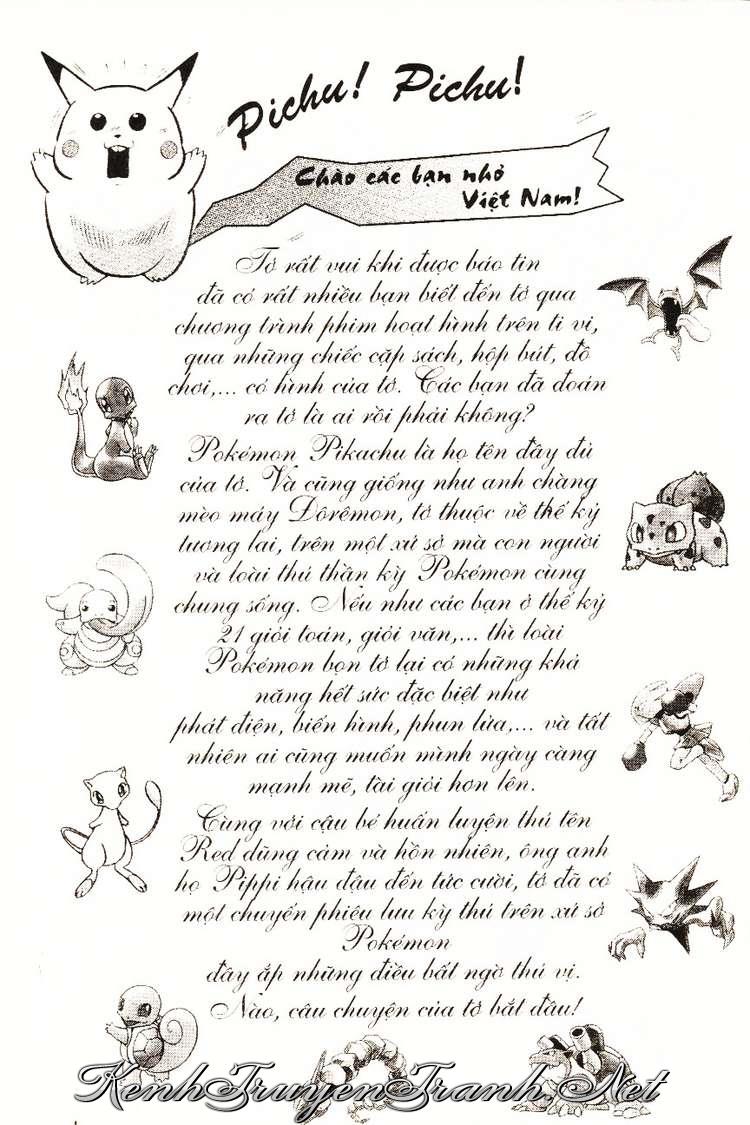 Pichu! Pichu!
Chào các bạn nhỏ
Việt Nam!
Tớ rất vui khi được báo tin
đã có rất nhiều bạn biết đến tớ qua
chương trình phim hoạt hình trên ti vi,
qua những chiếc cặp sách, hộp bút, đồ
chơi,... có hình của tớ. Các bạn đã đoán
ra tớ là ai rồi phải không?
Pokémon Pikachu là họ tên đầy đủ
của tớ. Và cũng giống như anh chàng
mèo máy Đôrêmon, tớ thuộc về thế kỷ
tương lai, trên một xứ sở mà con người
và loài thú thần kỳ Pokémon cùng
chung sống. Nếu như các bạn ở thế kỷ
21 giỏi toán, giỏi văn,... thì loài
Pokémon bọn tớ lại có những khả
năng hết sức đặc biệt như
phát điện, biến hình, phun lửa,... và tất
nhiên ai cũng muốn mình ngày càng
mạnh mẽ, tài giỏi hơn lên.
Cùng với cậu bé huấn luyện thú tên
Red dũng cảm và hồn nhiên, ông anh
họ Pippi hậu đậu đến tức cười, tớ đã có
một chuyến phiêu lưu kỳ thú trên xứ sở
Pokémon
đầy ắp những điều bất ngờ thú vị.
Nào, câu chuyện của tớ bắt đầu!
KenhTruyenTranh.Net